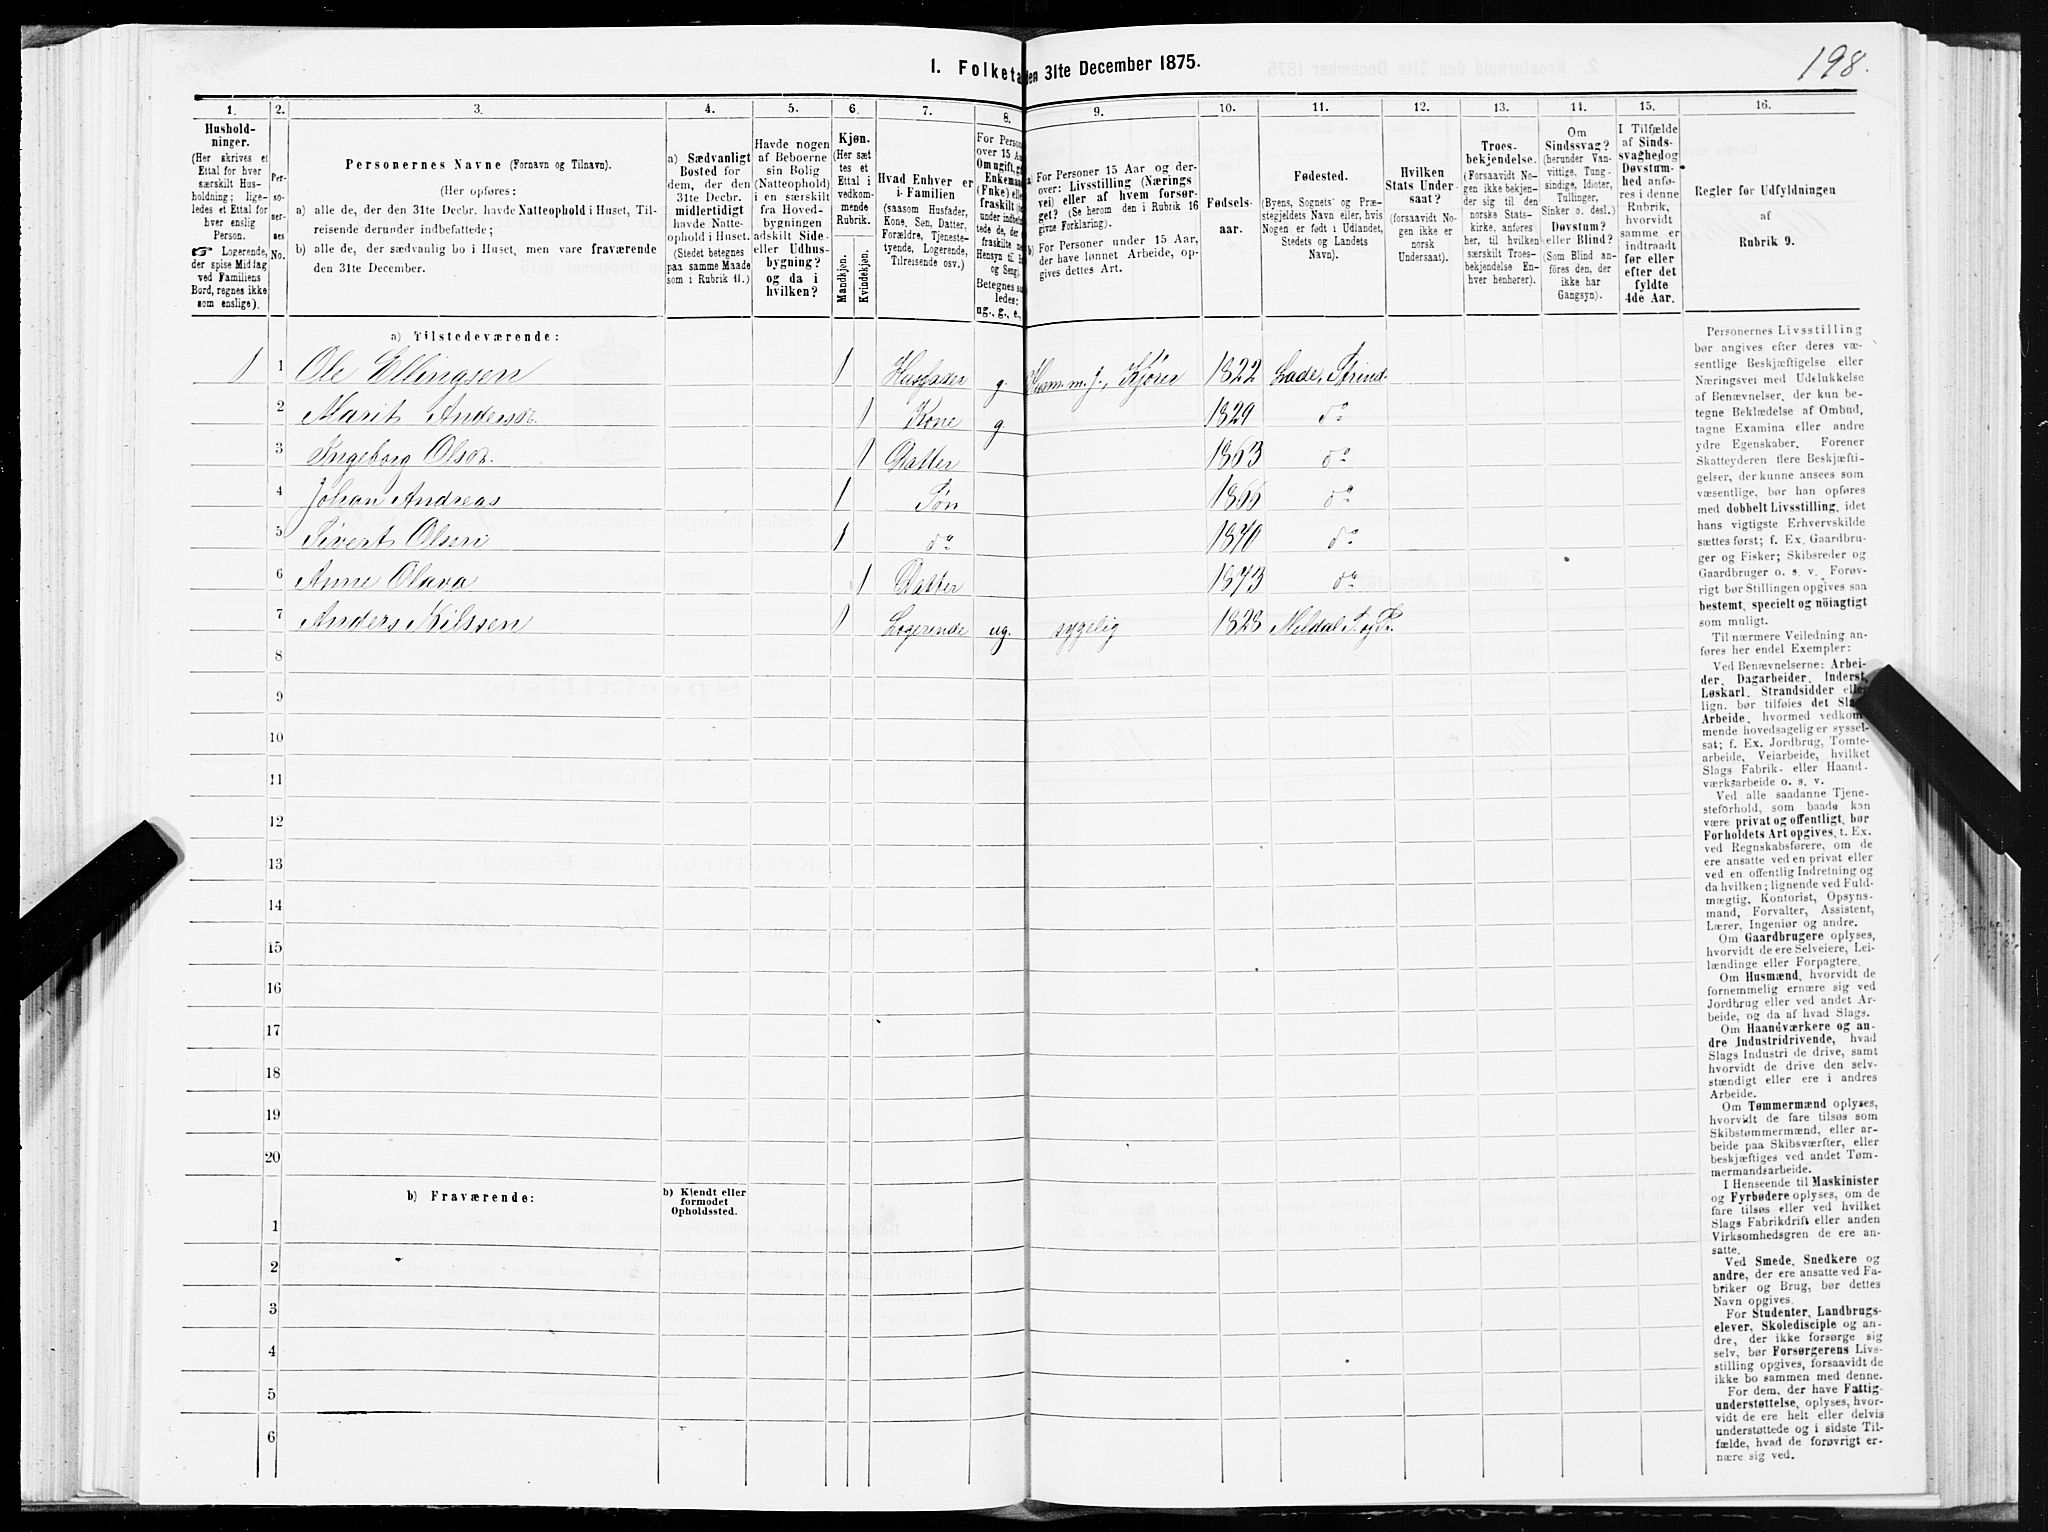 198.
1. Folketæ den 31te December 1875.
1. 2. 3. 4. 5. 6. 7. 8. 9. 10. 11. 12. 13. 14. 15. 16.
Hushold-
ninger.
(Her skrives et
Ettal for hver
særskilt Hus-
holdning; lige-
ledes et Ettal for
hver enslig
Person.
☞ Logerende,
der spise Middag
ved Familiens
Bord, regnes ikke
som enslige).
Per-
so-
ner-
nes
No.
Personernes Navne (Fornavn og Tilnavn).
(Her opføres:
a) alle de, der den 31te Decbr. havde Natteophold i Huset, Til-
reisende derunder indbefattede;
b) alle de, der sædvanlig bo i Huset, men vare fraværende
den 31te December.
a) Sædvanligt
Bosted for
dem, der den
31te Decbr.
midlertidigt
havde Natte-
ophold i Huset.
(Stedet betegnes
paa samme Maade
som i Rubrik 11.)
Havde nogen
af Beboerne
sin Bolig
(Natteophold)
i en særskilt
fra Hoved-
bygningen
adskilt Side-
eller Udhus-
bygning?
og da i
hvilken?
Kjøn.
(Her sæt
tes et
Ettal i
vedkom-
mende
Rubrik.
Mandkjøn.
Kvindekjøn.
Hvad Enhver er
i Familien
(saasom Husfader,
Kone, Søn, Datter,
Forældre, Tjeneste-
tyende, Logerende,
Tilreisende osv.)
For Perso
over 15 Aa
Om ugift, gi
Enkeman
(Fnke) elle
fraskilt (de
under indbe
tede de, de
fraskilte m
Hensyn til B
og Seng)
Betegnes sa
ledes:
ug., g., e.,
a) For Personer 15 Aar og der-
over: Livsstilling (Nærings
vei) eller af hvem forsør-
get? (Se herom den i Rubrik 16
givne Forklaring).
b) For Personer under 15 Aar,
der have lønnet Arbeide, op-
gives dettes Art.
Fødsels-
aar.
Fødested.
(Byens, Sognets og Præ-
stegjeldets Navn eller, hvis
Nogen er født i Udlandet,
Stedets og Landets
Navn).
Hvilken
Stats Under-
saat?
(forsaavidt No-
gen ikke er
norsk
Undersaat).
Troes-
bekjendelse.
(Forsaavidt No-
gen ikke bekjen-
der sig til den
norske Stats-
kirke, anføres
her, til hvilken
særskilt Troes-
bekjendelse En-
hver henhører).
Om
Sindssvag?
(herunder Van-
vittige, Tung-
sindige, Idioter,
Tullinger,
Sinker o. desl.)
Døvstum?
eller Blind?
(Som Blind an-
føres den, der
ikke har
Gangsyn).
I Tilfælde
af Sinds-
svaghedog
Døvstum-
hed anfø-
res i denne
Rubrik,
hvorvidt
samme er
indtraadt
før eller
efter det
fyldte
4de Aar.
Regler for Udfyldningen
af
Rubrik 9.
a) Tilstedeværende:
1 1 Ole Ellingsen 1 Husfader g. Husm. m. J., Kjører 1822 Lade, Strind.
2 Marit Andersdr. 1 Kone g. 1829 do
3 Ingeborg Olsdr. 1 Datter 1863 do
4 Johan Andreas 1 Søn 1866 do
5 Sivert Olsen 1 do 1870 do
6 Anne Olava 1 Datter 1873 do
7 Anders Nilssen 1 Logerende ug. sygelig 1828 Meldal S. og P.
8
9
10
11
12
13
14
15
16
17
18
19
20
b) Fraværende: b) Kjendt eller
formodet
Opholdssted.
1
2
3
4
5
6
Personernes Livsstilling
bør angives efter deres væ-
sentlige Beskjæftigelse eller
Næringsvei med Udelukkelse
af Benævnelser, der kun be-
tegne Beklædelse af Ombud,
tagne Examina eller andre
ydre Egenskaber. Forener
Skatteyderen flere Beskjæfti-
gelser, der kunne ansees som
væsentlige, bør han opføres
med dobbelt Livsstilling, idet
hans vigtigste Erhvervskilde
sættes først; f. Ex. Gaardbru-
ger og Fisker; Skibsreder og
Gaardbruger o. s. v. Forøv-
rigt bør Stillingen opgives saa
bestemt, specielt og nöiagtigt
som muligt.
Til nærmere Veiledning an-
føres her endel Exempler:
Ved Benævnelserne: Arbei-
der, Dagarbeider, Inderst,
Løskarl, Strandsidder eller
lign. bør tilføies det Slags
Arbeide, hvormed vedkom-
mende hovedsagelig er syssel-
sat; f. Ex. Jordbrug, Tomte-
arbeide, Veiarbeide, hvilket
Slags Fabrik- eller Haand-
værksarbeide o. s. v.
Ved alle saadanne Tjene-
steforhold, som baade kan
være privat og offentligt, bør
Forholdets Art opgives, t. Ex.
ved Regnskabsførere, om de
ere ansatte ved en privat eller
ved en offentlig Indretning og
da hvilken; lignende ved Fuld-
mægtig, Kontorist, Opsyns-
mand, Forvalter, Assistent,
Lærer, Ingeniør og andre.
Om Gaardbrugere oplyses,
hvorvidt de ere Selveiere, Lei-
lændinge eller Forpagtere.
Om Husmænd, hvorvidt de
fornemmelig ernære sig ved
Jordbrug eller ved andet Ar-
beide, og da af hvad Slags.
Om Haandværkere og an-
dre Industridrivende, hvad
Slags Industri de drive, samt
hvorvidt de drive den selv-
stændigt eller ere i andres
Arbeide.
Om Tømmermænd oplyses,
hvorvidt de fare tilsøs som
Skibstømmermænd, eller ar-
beide paa Skibsværfter, eller
beskjæftiges ved andet Tøm-
mermandsarbeide.
I Henseende til Maskinister
og Fyrbødere oplyses, om de
fare tilsøs eller ved hvilket
Slags Fabrikdrift eller anden
Virksomhedsgren de ere an-
satte.
Ved Smede, Snedkere og
andre, der ere ansatte ved Fa-
briker og Brug, bør dettes
Navn opgives.
For Studenter, Landbrugs-
elever, Skoledisciple og an-
dre, der ikke forsørge sig
selv, bør Forsørgerens Livs-
stilling opgives, forsaavidt de
ikke bo sammen med denne.
For dem, der have Fattig-
understøttelse, oplyses, hvor-
vidt de ere helt eller delvis
understøttede og i sidste Til-
fælde, hvad de forøvrigt er-
nære sig ved.